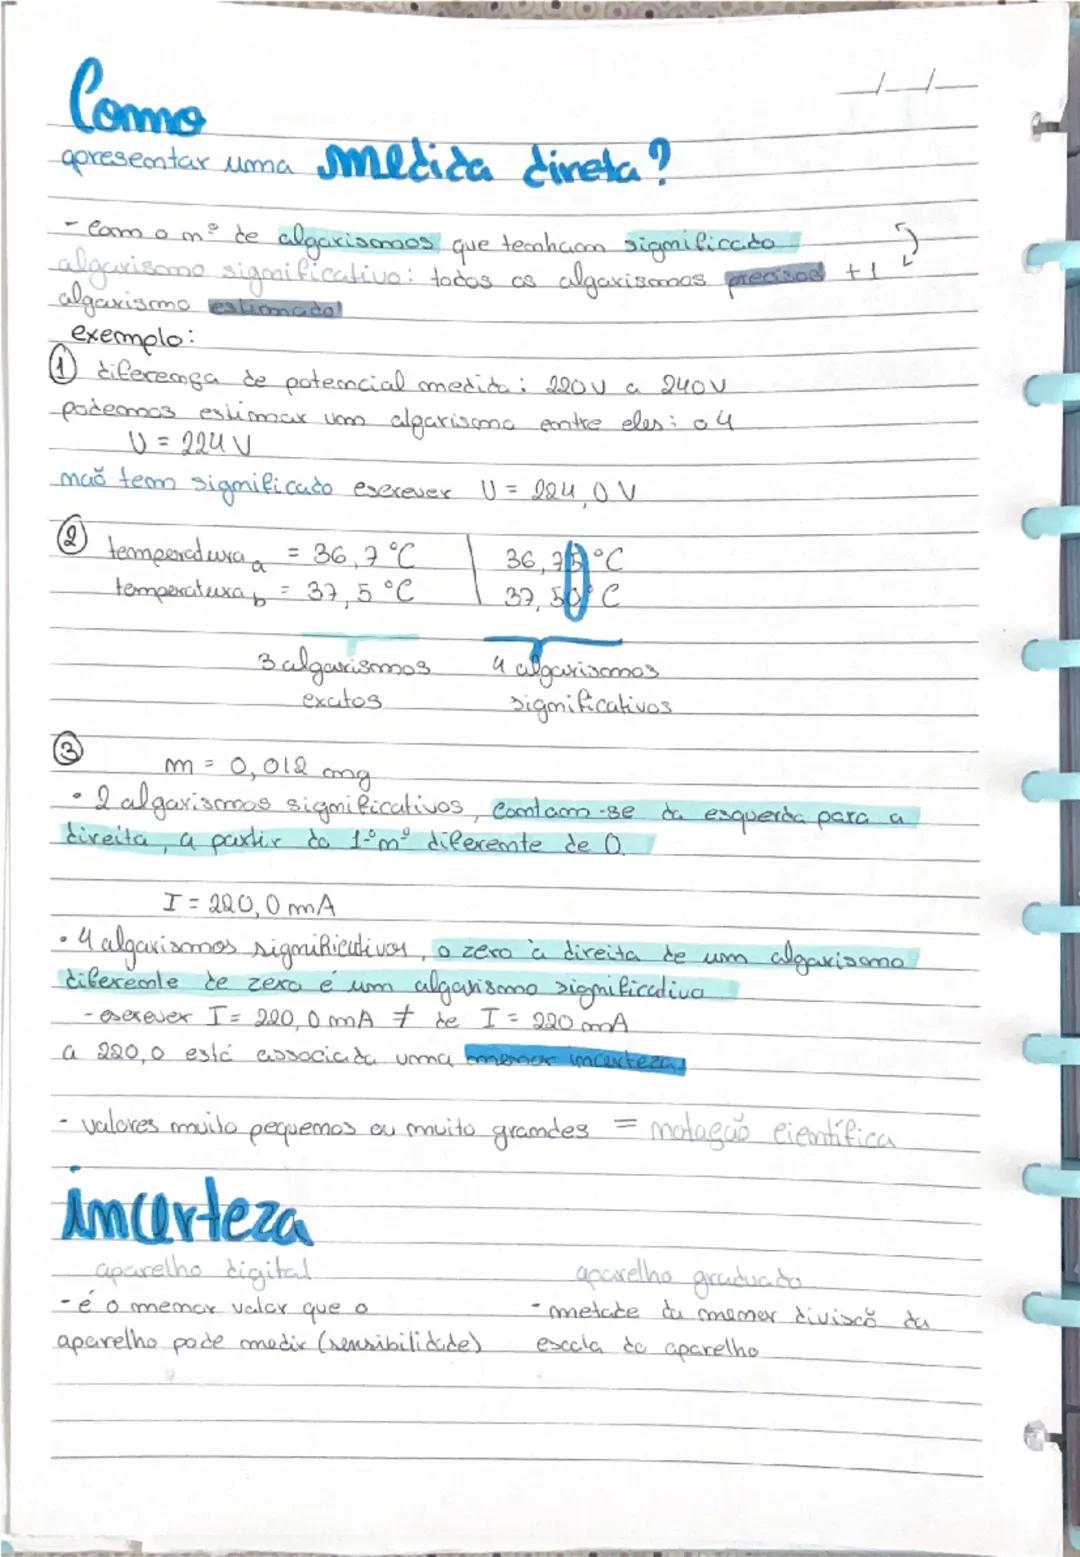 Como
apresentar uma medida direta?
- Com o nº de algarismos que tenham significado
algarismo significativo: todos os algarismos precisos +1
algarismo estimado!
exemplo:
① diferença de potencial medida: 220V a 240V
podemos estimar um algarismo entre eles: o 4
U = 224 V
não tem significado escrever U = 224,0 V
② temperatura a = 36,7 °C | 36,75 °C
temperatura b = 37,5 °C | 37,50 °C
3 algarismos 4 algarismos
exatos significativos
③ m = 0,012 mg
• 2 algarismos significativos, contam-se da esquerda para a
direita, a partir do 1º nº diferente de 0.
I = 220,0 mA
• 4 algarismos significativos, o zero à direita de um algarismo
diferente de zero é um algarismo significativo
- escrever I = 220,0 mA ≠ de I = 220 mA
a 220,0 está associada uma menor incerteza
- valores muito pequenos ou muito grandes = notação científica
incerteza
aparelho digital aparelho graduado
- é o menor valor que o - metade da menor divisão da
aparelho pode medir (sensibilidade) escala do aparelho